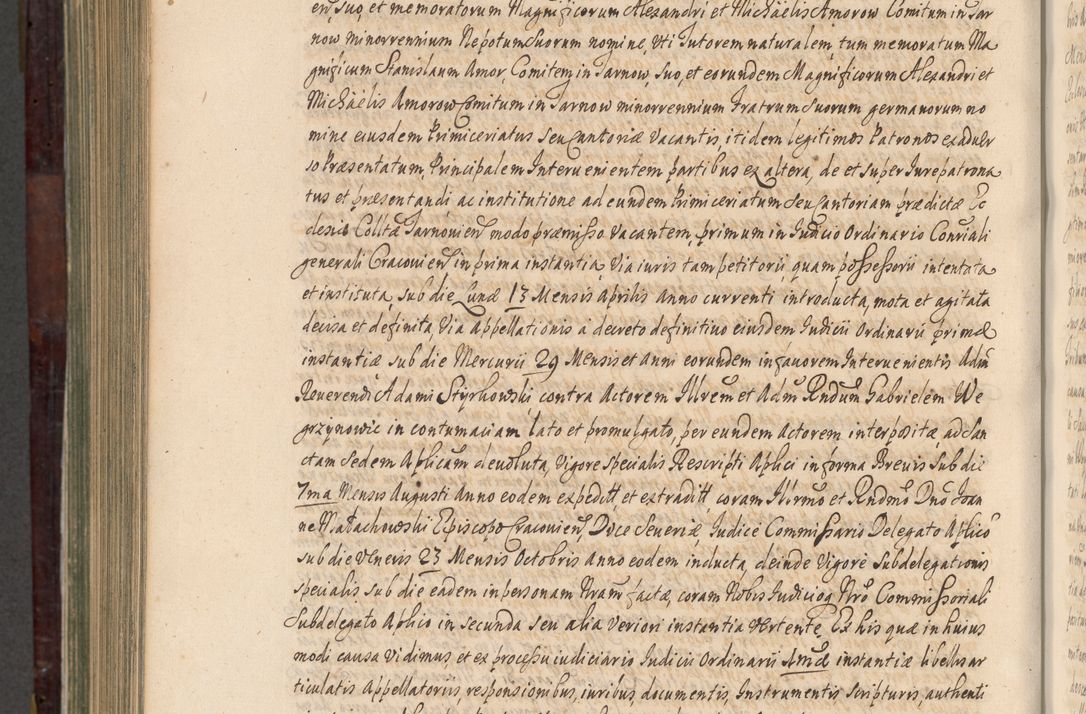 en, suo, et memoratorum Magnificorum Alexandri et Michaëlis Amorow Comitum in Tar
now minorrennium Nepotum Suorum nomine, Uti Tutorem naturalem, tum memoratum Ma
gnificum Stanislaum Amor Comitem in Tarnow, suo, et eorundem Magnificorum Alexandri et
Michaëlis Amorow Comitum in Tarnow minorrennium Fratrum Suorum germanorum no
mine eiusdem Primiceriatus seu Cantoriæ Vacantis, itidem legitimos Patronos ex adver
so Præsentatum, Principalem Intervenientem partibus ex altera, de et super Iurepatrona
tus et præsentandi ac institutione ad eundem Primiceriatum seu Cantoriam prædictæ Ec
clesiæ Collta Tarnovien modo præmisso Vacantem, primum in Iudicio Ordinario Consiali
generali Cracovien in prima instantia, Via iuris tam petitorii quam possessorii intentata
et instituta, sub die Lunæ 13 Mensis Aprilis Anno currenti introducta, mota et agitata
decisa et definita, Via Appellationis a decreto definitivo eiusdem Iudicii Ordinarii primæ
instantiæ sub die Mercurii 29 Mensis et Anni eorundem in favorem Intervenientis Adm
Reverendi Adami Styrkowski contra Actorem Illrem et Adm Rndum Gabrielem We
grzynowic in contumaciam lato et promulgato, per eundem Actorem interposita, ad San
ctam Sedem Aplicam devoluta, Vigore specialis Rescripti Aplici in forma Brevis sub die
7ma Mensis Augusti Anno eodem expeditt, et extraditt, coram Illrmo et Rndmo Dno Ioan
ne Małachowski Episcopo Cracovien, Duce Severiæ, Iudice Commissario Delegato Aplico
sub die Veneris 23 Mensis Octobris Anno eodem inducta, deinde Vigore Subdelegationis
specialis sub die eadem in personam Nram factæ, coram Nobis Iudicioq Nro Commissoriali
Subdelegato Aplico in secunda seu alia Veriori instantia Vertente, Ex his quæ in huius
modi causa Vidimus et ex processu iudiciario Iudicii Ordinarii Imæ instantiæ libellis ar
ticulatis Appellatoriis, responsionibus, iuribus, documentis, Instrumentis scripturis, authenti